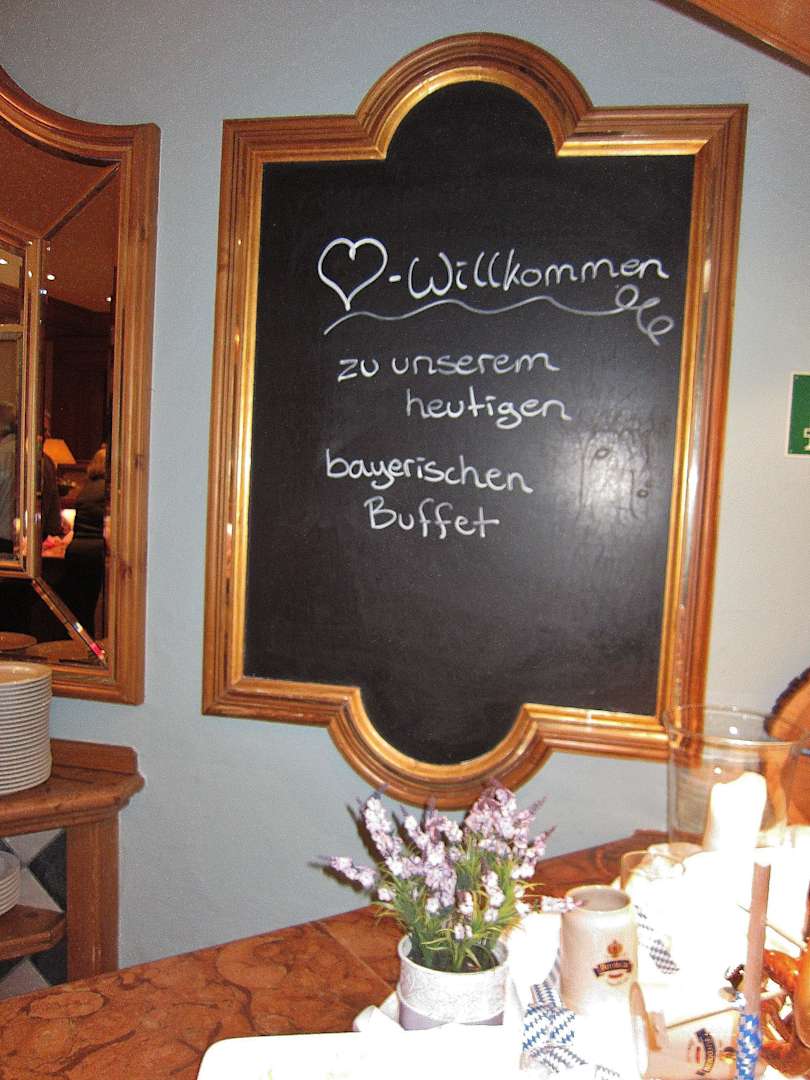 ♥-Willkommen
zu unserem
heutigen
bayerischen
Buffet